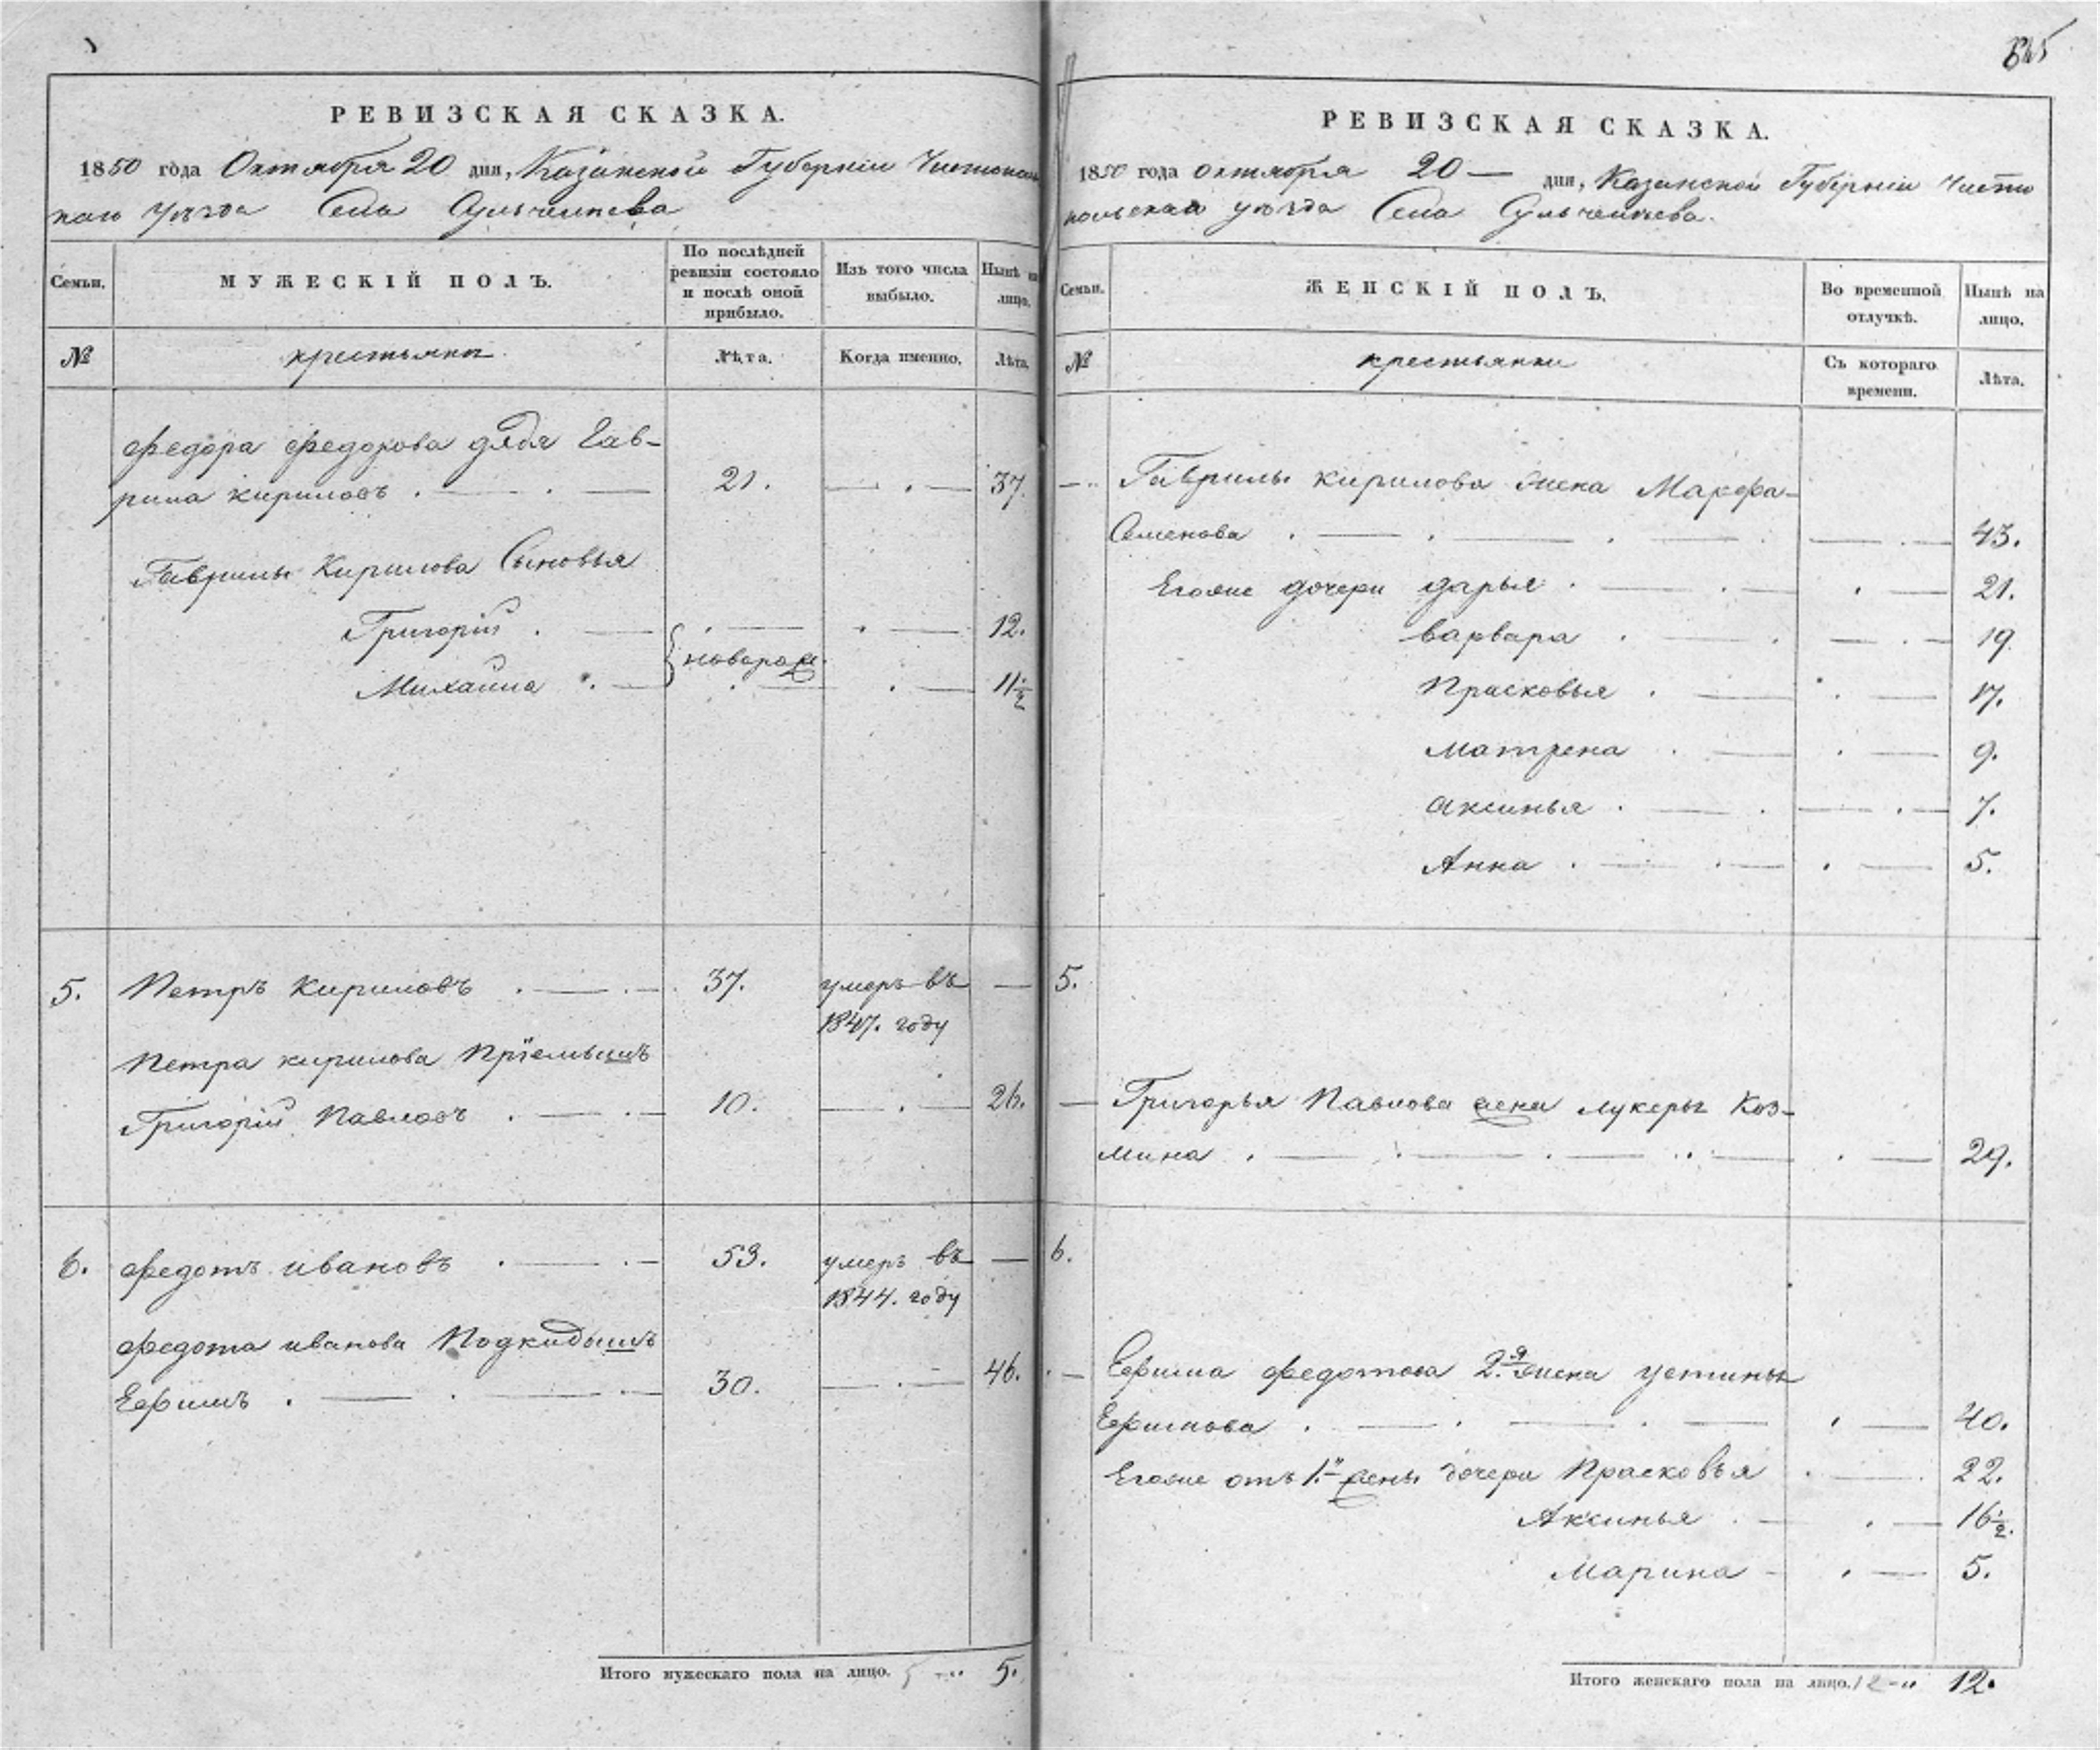 РЕВИЗСКАЯ СКАЗКА.
1850 года Октября 20 дня, Казанской Губернiи Чистополь
скаго уѣзда Села Сульчелиева
Семьи.
МУЖЕСКIЙ ПОЛЪ.
По послѣдней
ревизiи состояло
и послѣ оной
прибыло.
Изъ того числа
выбыло.
Нынѣ на
лицо.
№
крестьяне
Лѣта.
Когда именно.
Лѣта.
Федора Федорова дядя Гав-
рила Кириловъ . — . — 21. — . — 37.
Гаврилы Кирилова Сыновья
Григорiй . — . — . — 12.
новорож.
Михайла . — . — . — 11½
5. Петръ Кириловъ . — . — 37. умеръ въ —
1847. году
Петра Кирилова Прiемышъ
Григорiй Павловъ . — . — 10. — . — 26.
6. Федотъ Ивановъ . — . — 53. умеръ въ —
1844. году
Федота Иванова Подкидышъ
Ефимъ . — . — . — 30. — . — 46.
Итого мужескаго пола на лицо. 5 5.
645
РЕВИЗСКАЯ СКАЗКА.
1850 года Октября 20 — дня, Казанской Губернiи Чисто
польскаго уѣзда Села Сульчелиева.
Семьи.
ЖЕНСКIЙ ПОЛЪ.
Во временной
отлучкѣ.
Нынѣ на
лицо.
№
крестьянки
Съ котораго
времени.
Лѣта.
— Гаврилы Кирилова жена Марфа
Семенова . — . — . — — . — 43.
Егоже дочери Дарья . — . — . — 21.
Варвара . — . — . — 19
Прасковья . — . — 17.
Матрена . — . — 9.
Аксинья . — . — . — 7.
Анна . — . — . — 5.
5.
— Григорья Павлова жена Лукерья Коз-
мина . — . — . — . — . — 29.
6.
— Ефима Федотова 2.я жена Устинья
Ефимова . — . — . — . — 40.
Егоже отъ 1.й жены дочери Прасковья . — 22.
Аксинья . — . — 16½.
Марина - . — 5.
Итого женскаго пола на лицо. 12 12.